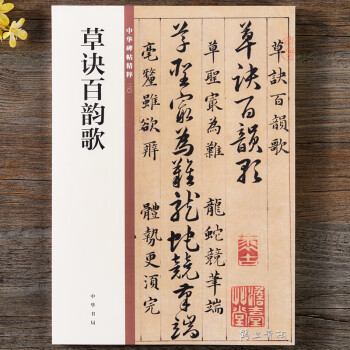 草诀百韵歌
中华碑帖精粹
中华书局
草訣百韻歌
草訣百韻歌
草聖冣為難 龍蛇競筆端
草聖冣為難龍蛇競筆端
毫釐雖欲辨 體勢更須完